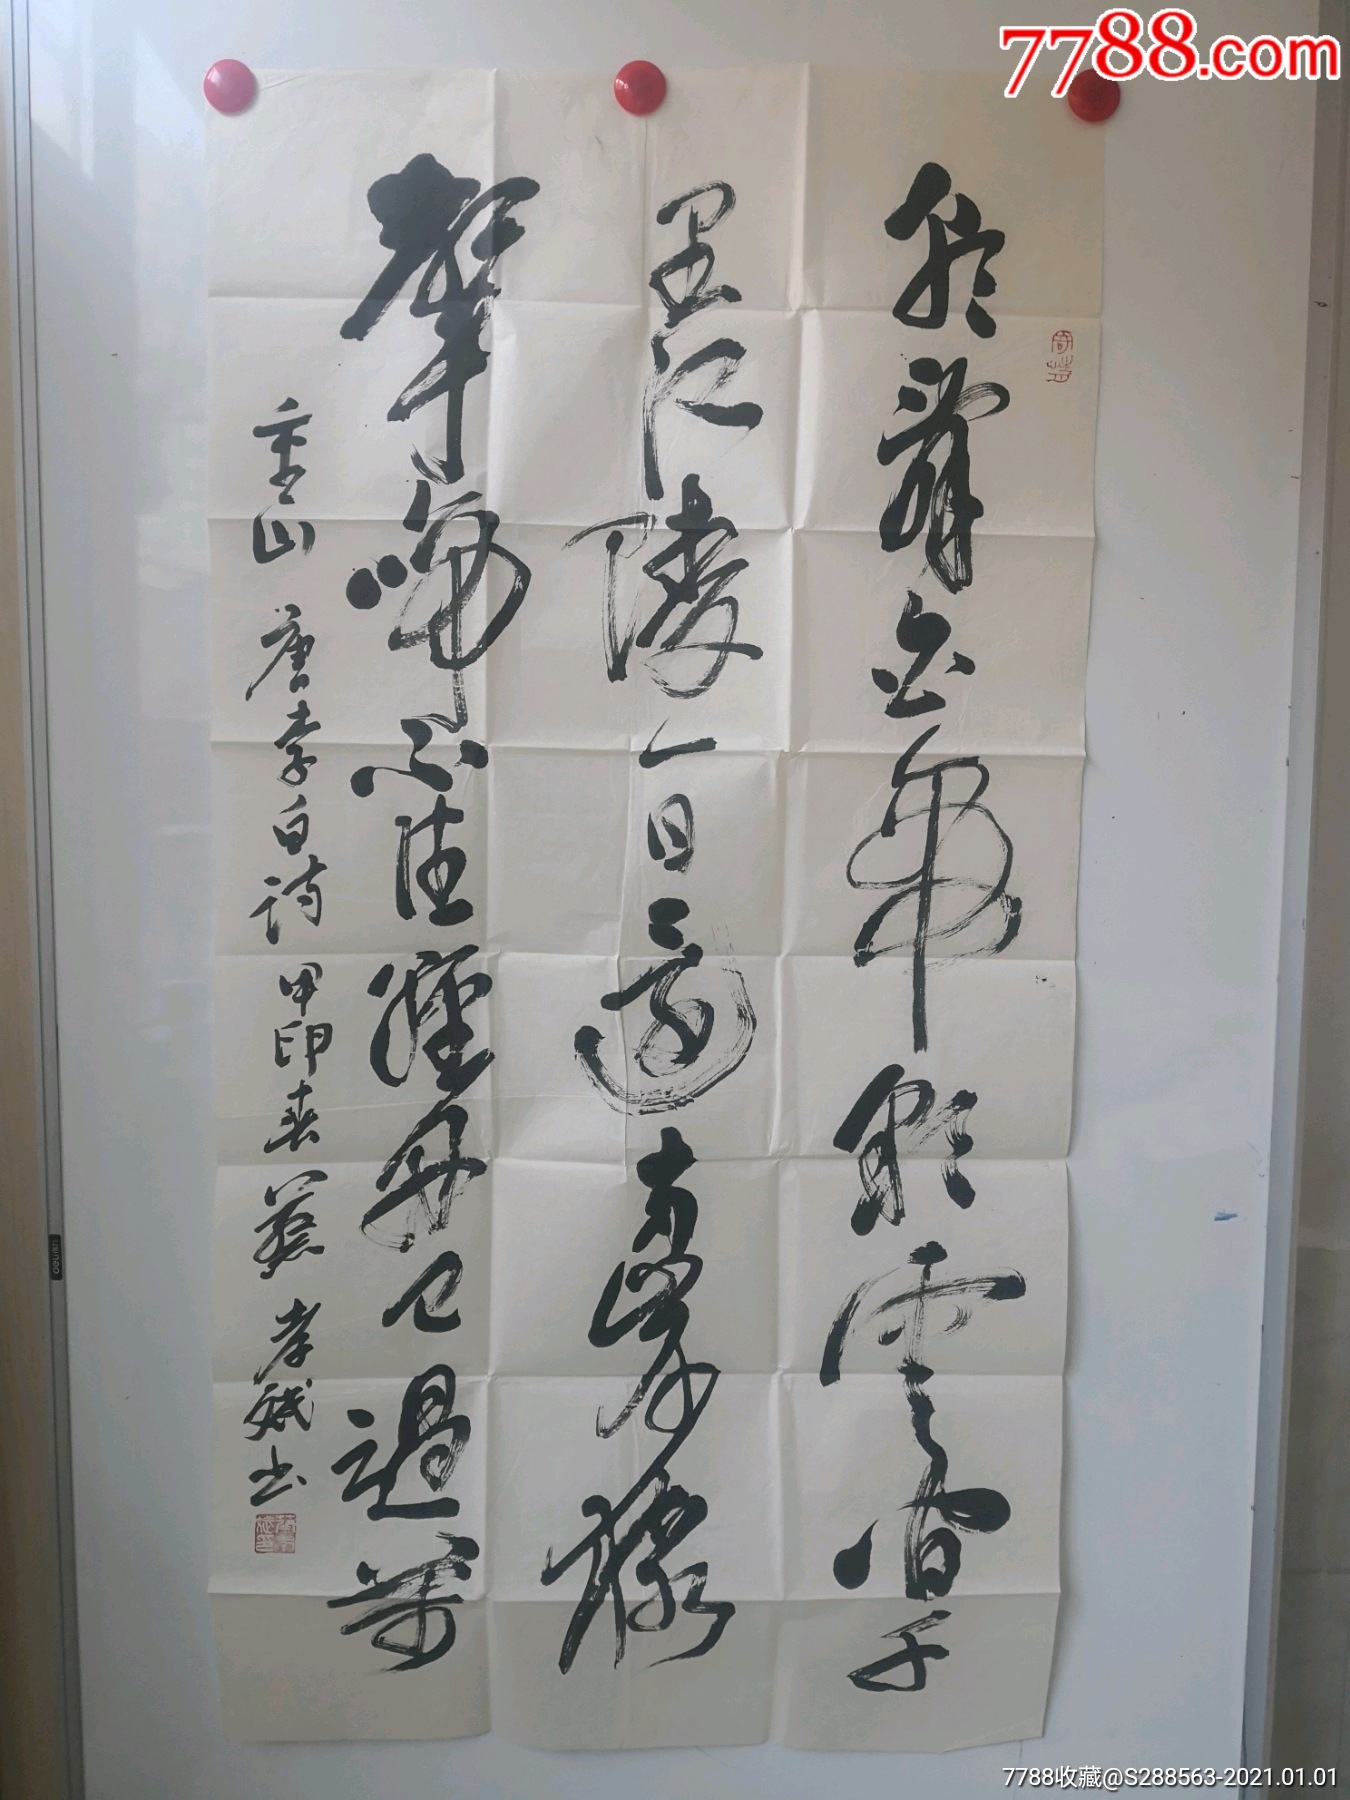 7788.com
朝辭白帝彩雲間千
里江陵一日還兩岸猿
聲啼不住輕舟已過萬
重山 唐李白詩 甲 春 孝 书
7788收藏@S288563-2021.01.01